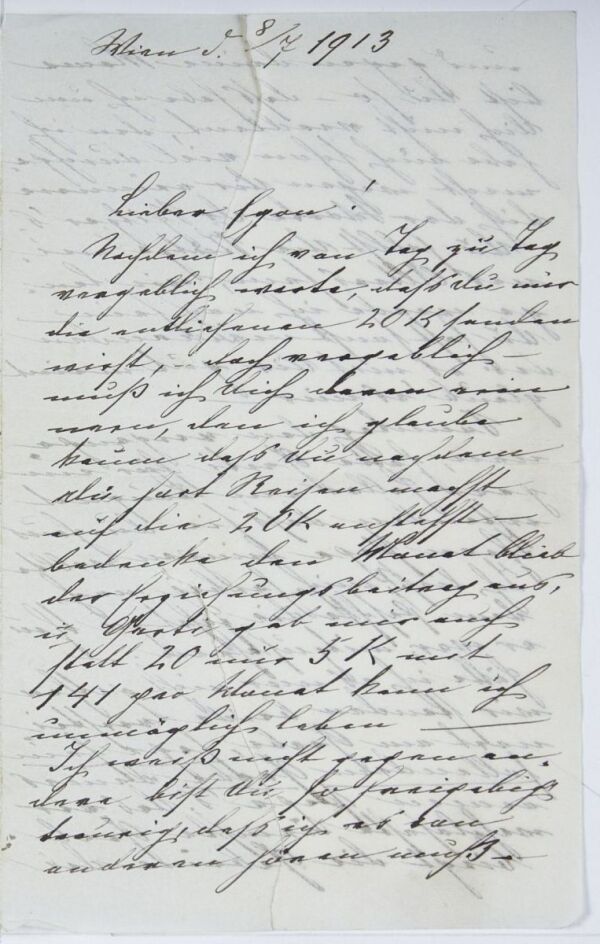 Wien d. 8/7 1913
Lieber Egon!
Nachdem ich von Tag zu Tag
vergeblich warte, daß du mir
die entliehenen 20 K senden
wirst, – doch vergeblich –
muß ich Dich daran erin
nern, den ich glaube
kaum daß du nachdem
du fort Reisen machst
auf die 20 K anstehst –
bedenke den Monat blieb
der Erziehungsbeitrag aus,
u. Gerti gab mir auch
statt 20 nur 5 K mit
141 pro Monat kann ich
unmöglich leben —
Ich weiß nicht gegen an-
dere bist du so freigebig
traurig, daß ich es von
anderen hören muß –